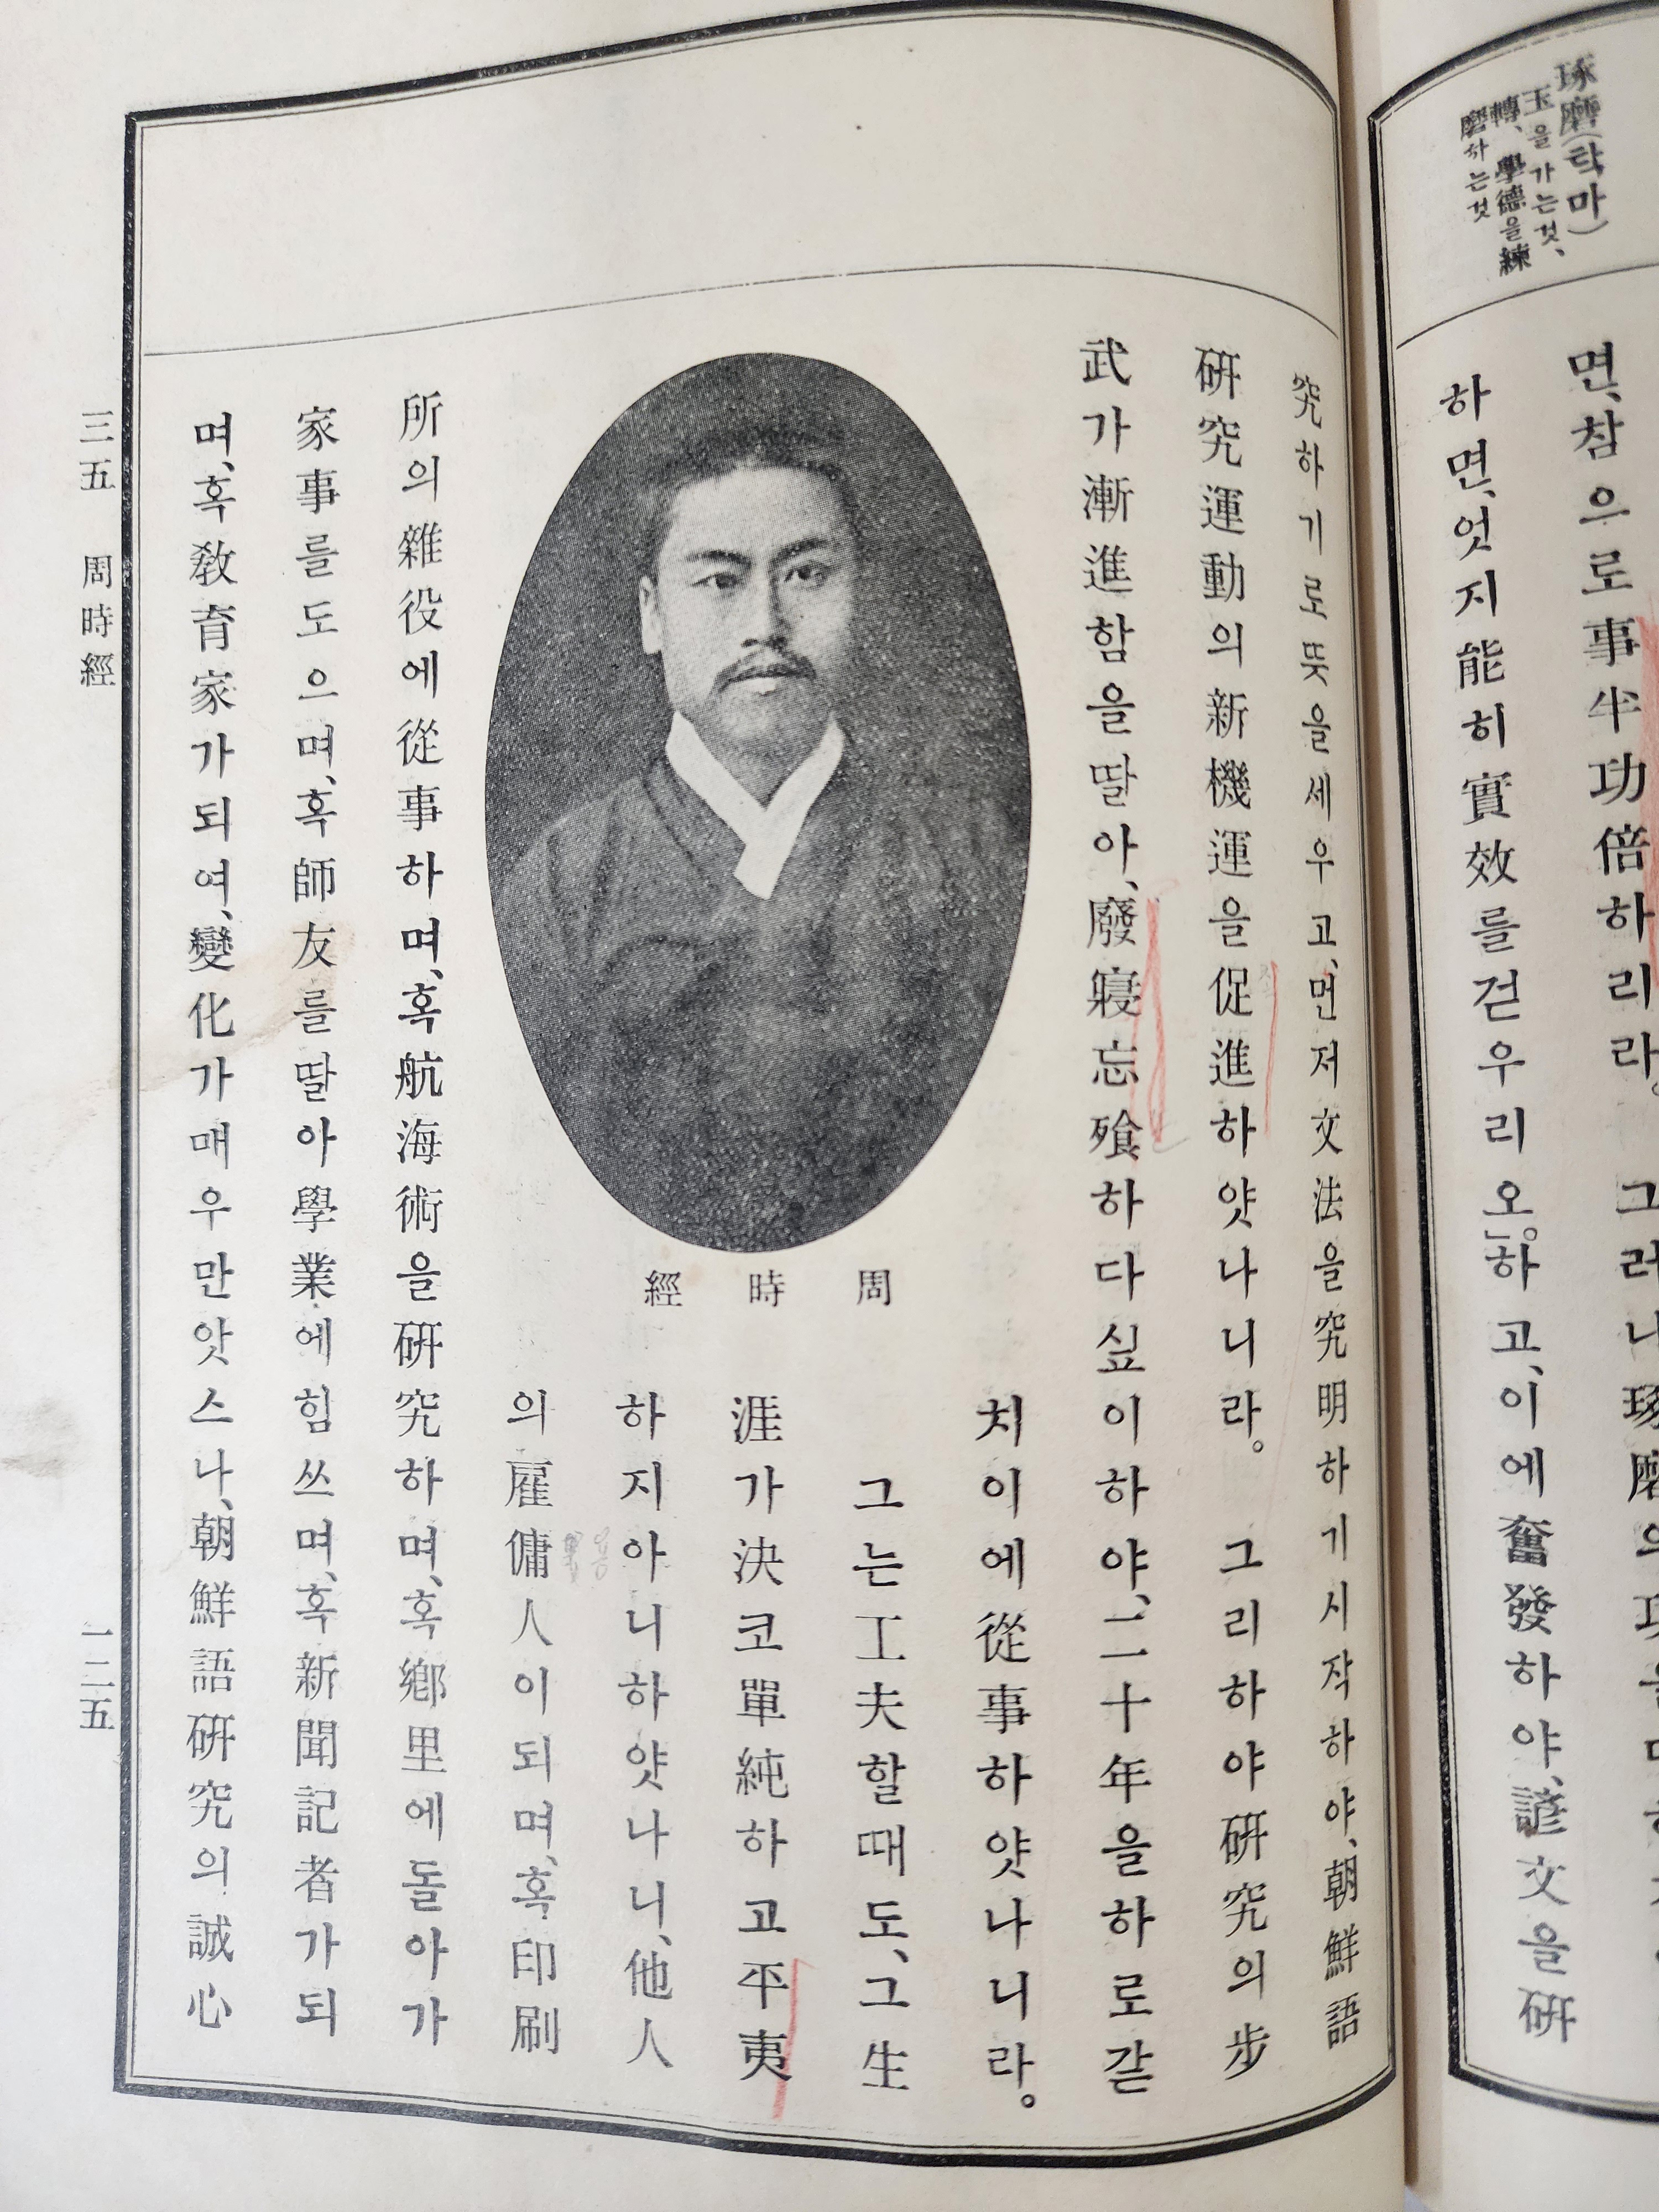 琢磨(탁마)
玉을가는것、
轉、學德을練
磨하는것
면、참으로事半功倍하리라。 그러나琢磨의
하면、엇지能히實效를걷우리오。」하고、이에奮發하야、諺文을硏
究하기로뜻을세우고、먼저文法을究明하기시작하야、朝鮮語
硏究運動의新機運을促進하얏나니라。 그리하야硏究의步
武가漸進함을딸아、廢寢忘飱하다싶이하야、二十年을하로같
치이에從事하얏나니라。
그는工夫할때도、그生
涯가決코單純하고平夷
하지아니하얏나니、他人
의雇傭人이되며、혹印刷
周時經
所의雜役에從事하며、혹航海術을硏究하며、혹鄕里에돌아가
家事를도으며、혹師友를딸아學業에힘쓰며、혹新聞記者가되
며、혹敎育家가되여、變化가매우만앗스나、朝鮮語硏究의誠心
三五 周時經 一二五